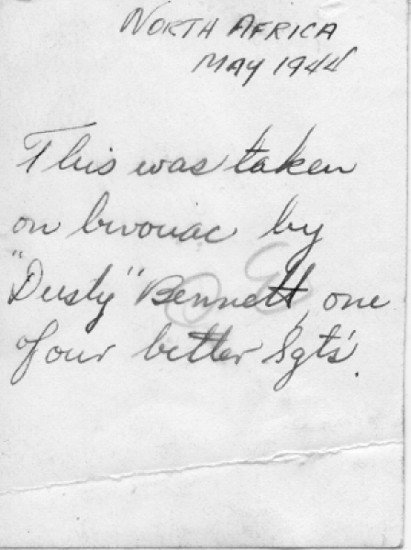 NORTH AFRICA
MAY 1944
This was taken
on bivouac by
"Dusty" Bennett, one
of our better Sgts'.